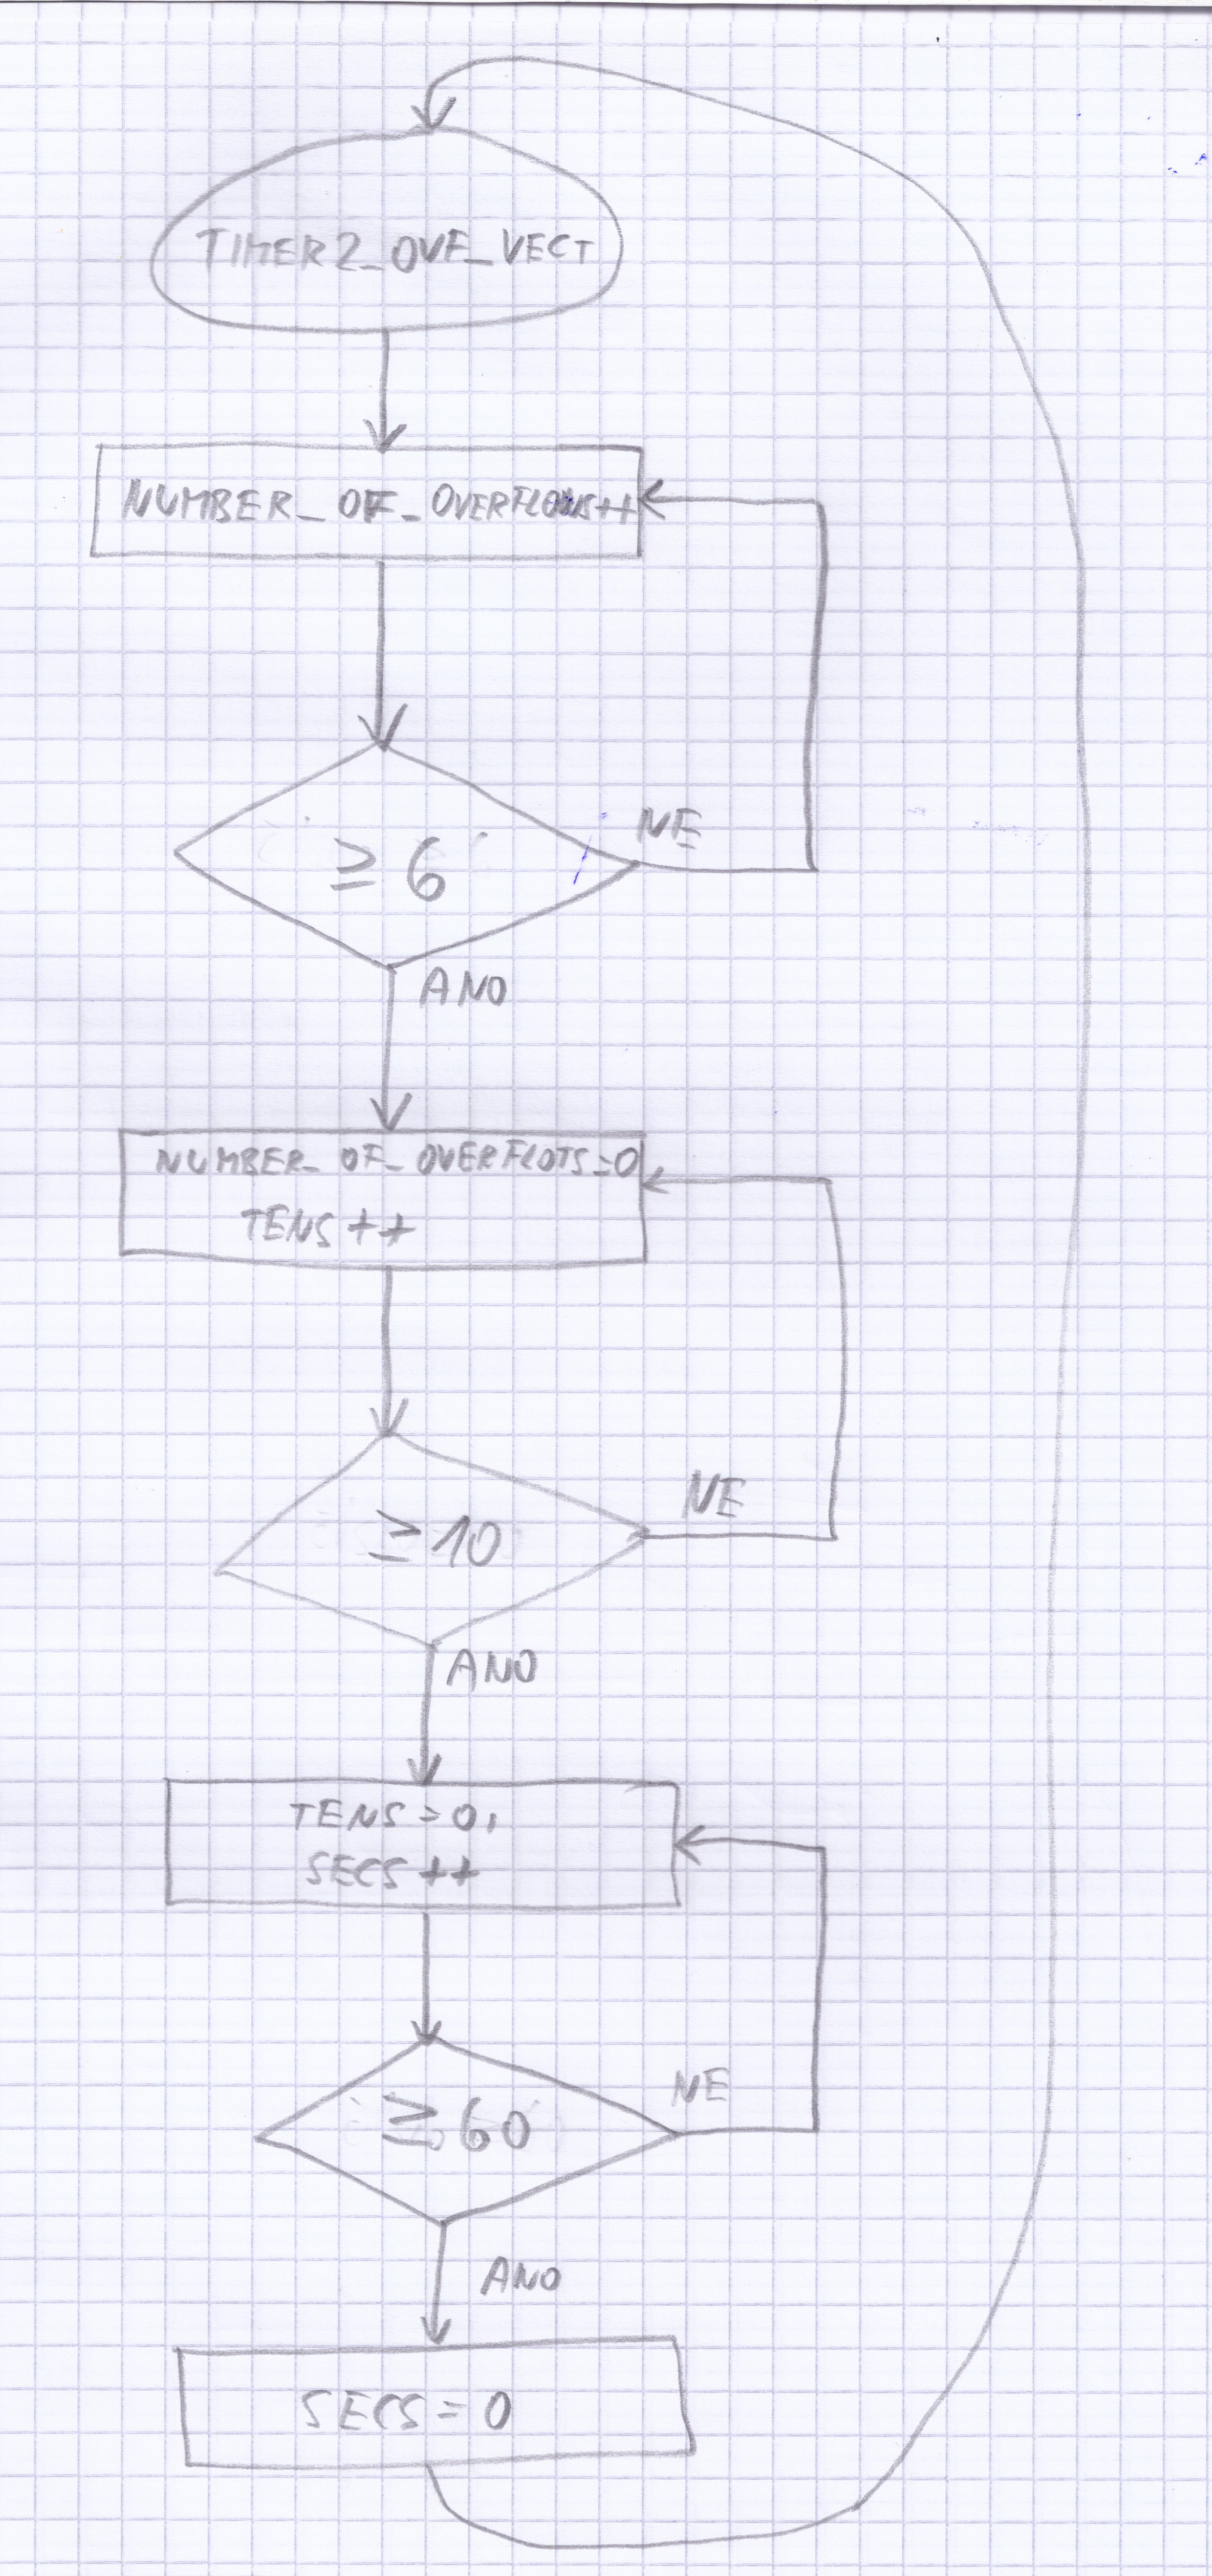 TIMER2_OVF_VECT
NUMBER_OF_OVERFLOWS++
≥ 6
NE
ANO
NUMBER_OF_OVERFLOTS=0
TENS++
≥10
NE
ANO
TENS=0,
SECS++
≥60
NE
ANO
SECS=0